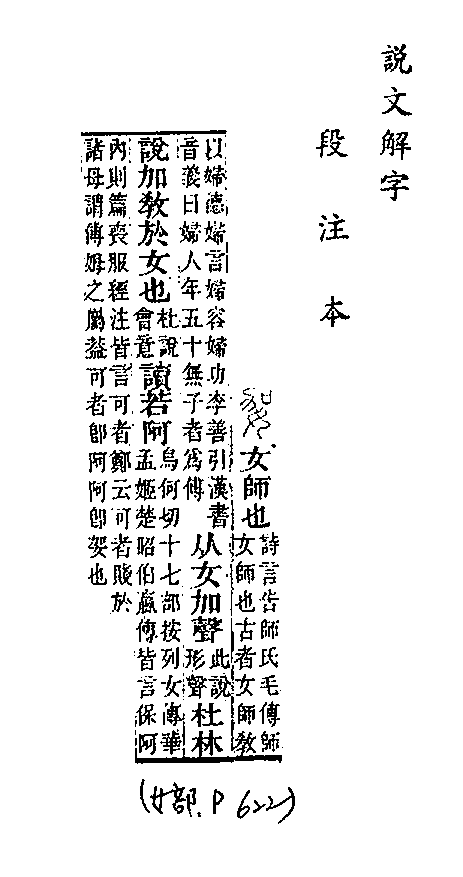 説文解字
段注本
女師也
詩言告師氏毛傳師
女師也古者女師教
以婦德婦言婦容婦功李善引漢書
音義曰婦人年五十無子者爲傅
从女加聲
此說
形聲
杜林
說加教於女也
杜說
會意
讀若阿
烏何切十七部按列女傳華
孟姬楚昭伯嬴傳皆言保阿
內則篇喪服經注皆言可者鄭云可者賤於
諸母謂傅姆之屬葢可者卽阿阿卽妿也
(女部. P 622)